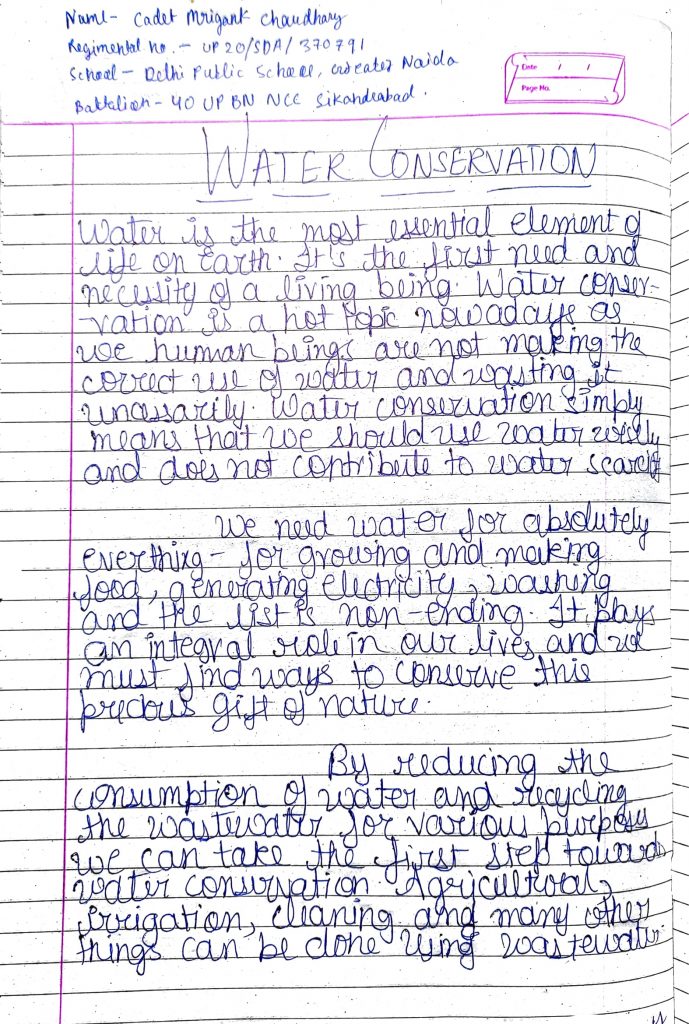 Name- Cadet Mrigank Chaudhary
Regimental no. - UP20/SDA/370791
School - Delhi Public School, Greater Noida
Battalion - 40 UP BN NCC Sikandrabad.
Date / /
Page No.
WATER CONSERVATION
Water is the most essential element of
life on Earth. It's the first need and
necessity of a living being. Water conser-
-vation is a hot topic nowadays as
we human beings are not making the
correct use of water and wasting it
unassarily. Water conservation simply
means that we should use water wisely
and does not contribute to water scarcity
We need water for absolutely
everthing - for growing and making
food, generating electricity, washing
and the list is non-ending. It plays
an integral role in our lives and we
must find ways to conserve this
precious gift of nature.
By reducing the
consumption of water and recycling
the wastewater for various purposes
we can take the first step towards
water conservation. Agricultural,
irrigation, cleaning and many other
things can be done using wastewater